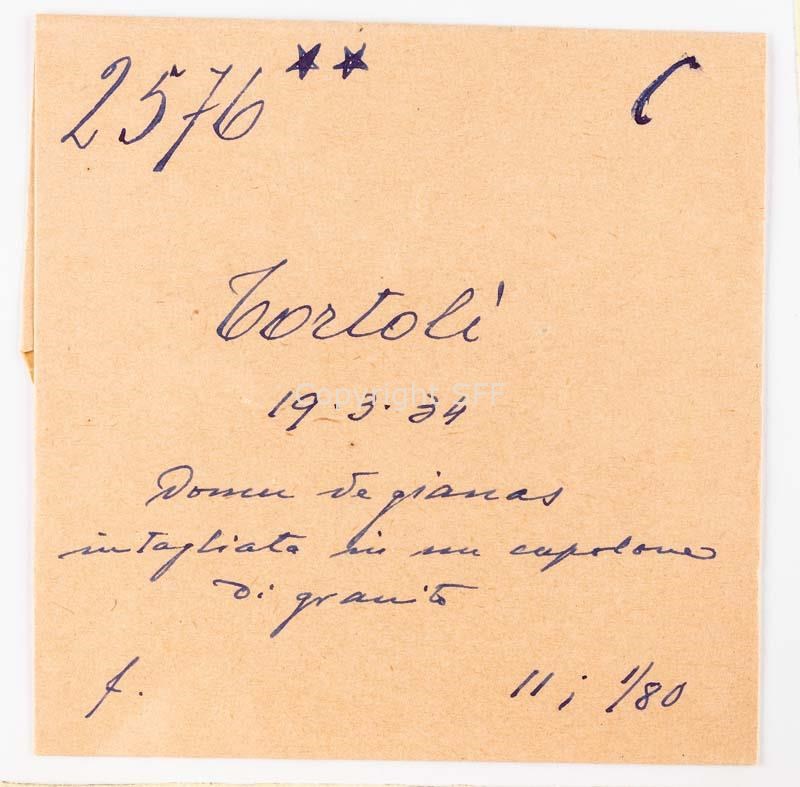 2576 ★★ C
Tortolì
Copyright SFF
19.3.34
Domu de gianas
intagliata in un cupolone
di granito
f. 11 ; 1/80